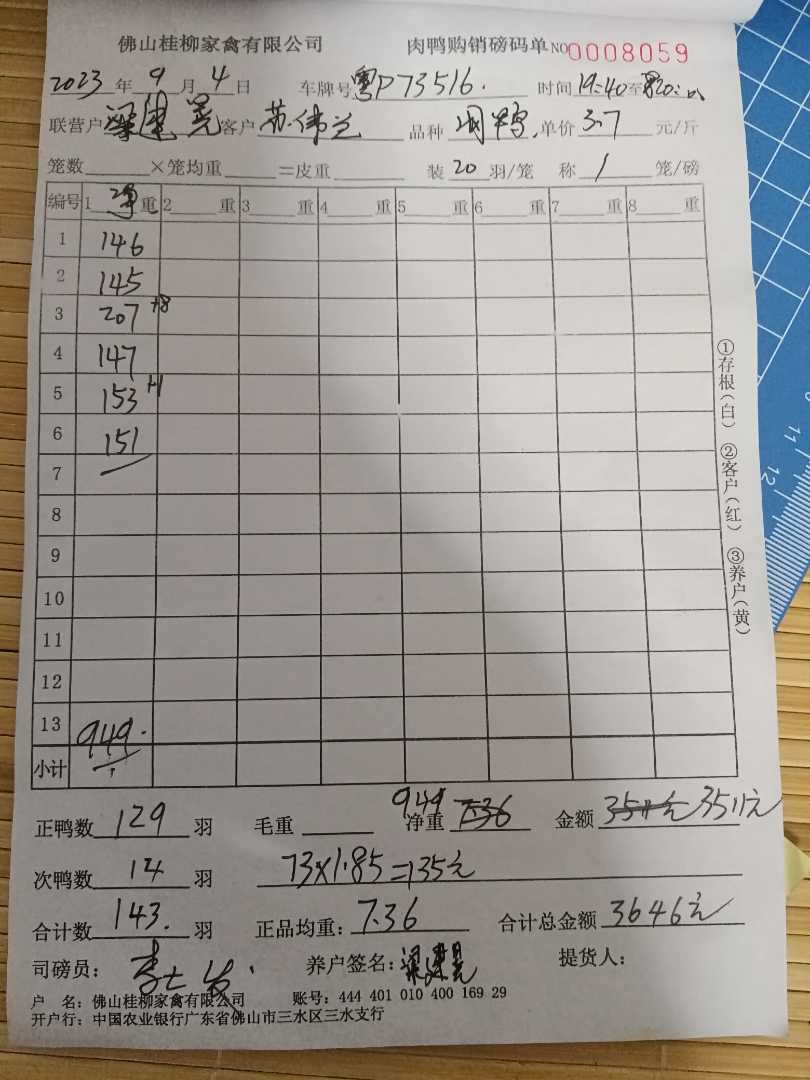 佛山桂柳家禽有限公司 肉鸭购销磅码单 NO 0008059
2023 年 9 月 4 日 车牌号 粤P73516. 时间 19:40 至
联营户 梁建晃 客户 苏伟兰 品种 鸭. 单价 3.7 元/斤
笼数 ×笼均重 =皮重 装 20 羽/笼 称 1 笼/磅
编号 1 净 重 2 重 3 重 4 重 5 重 6 重 7 重 8 重
1 146
2 145
3 207 +8
4 147
5 153 +1
6 151
7
8
9
10
11
12
13
小计 949.
①存根(白) ②客户(红) ③养户(黄)
正鸭数 129 羽 毛重 净重 949 7.36 金额 3511元 3511元
次鸭数 14 羽 73×1.85=135元
合计数 143. 羽 正品均重: 7.36 合计总金额 3646元
司磅员: 养户签名: 梁建晃 提货人:
户 名: 佛山桂柳家禽有限公司 账号: 444 401 010 400 169 29
开户行: 中国农业银行广东省佛山市三水区三水支行
11
12